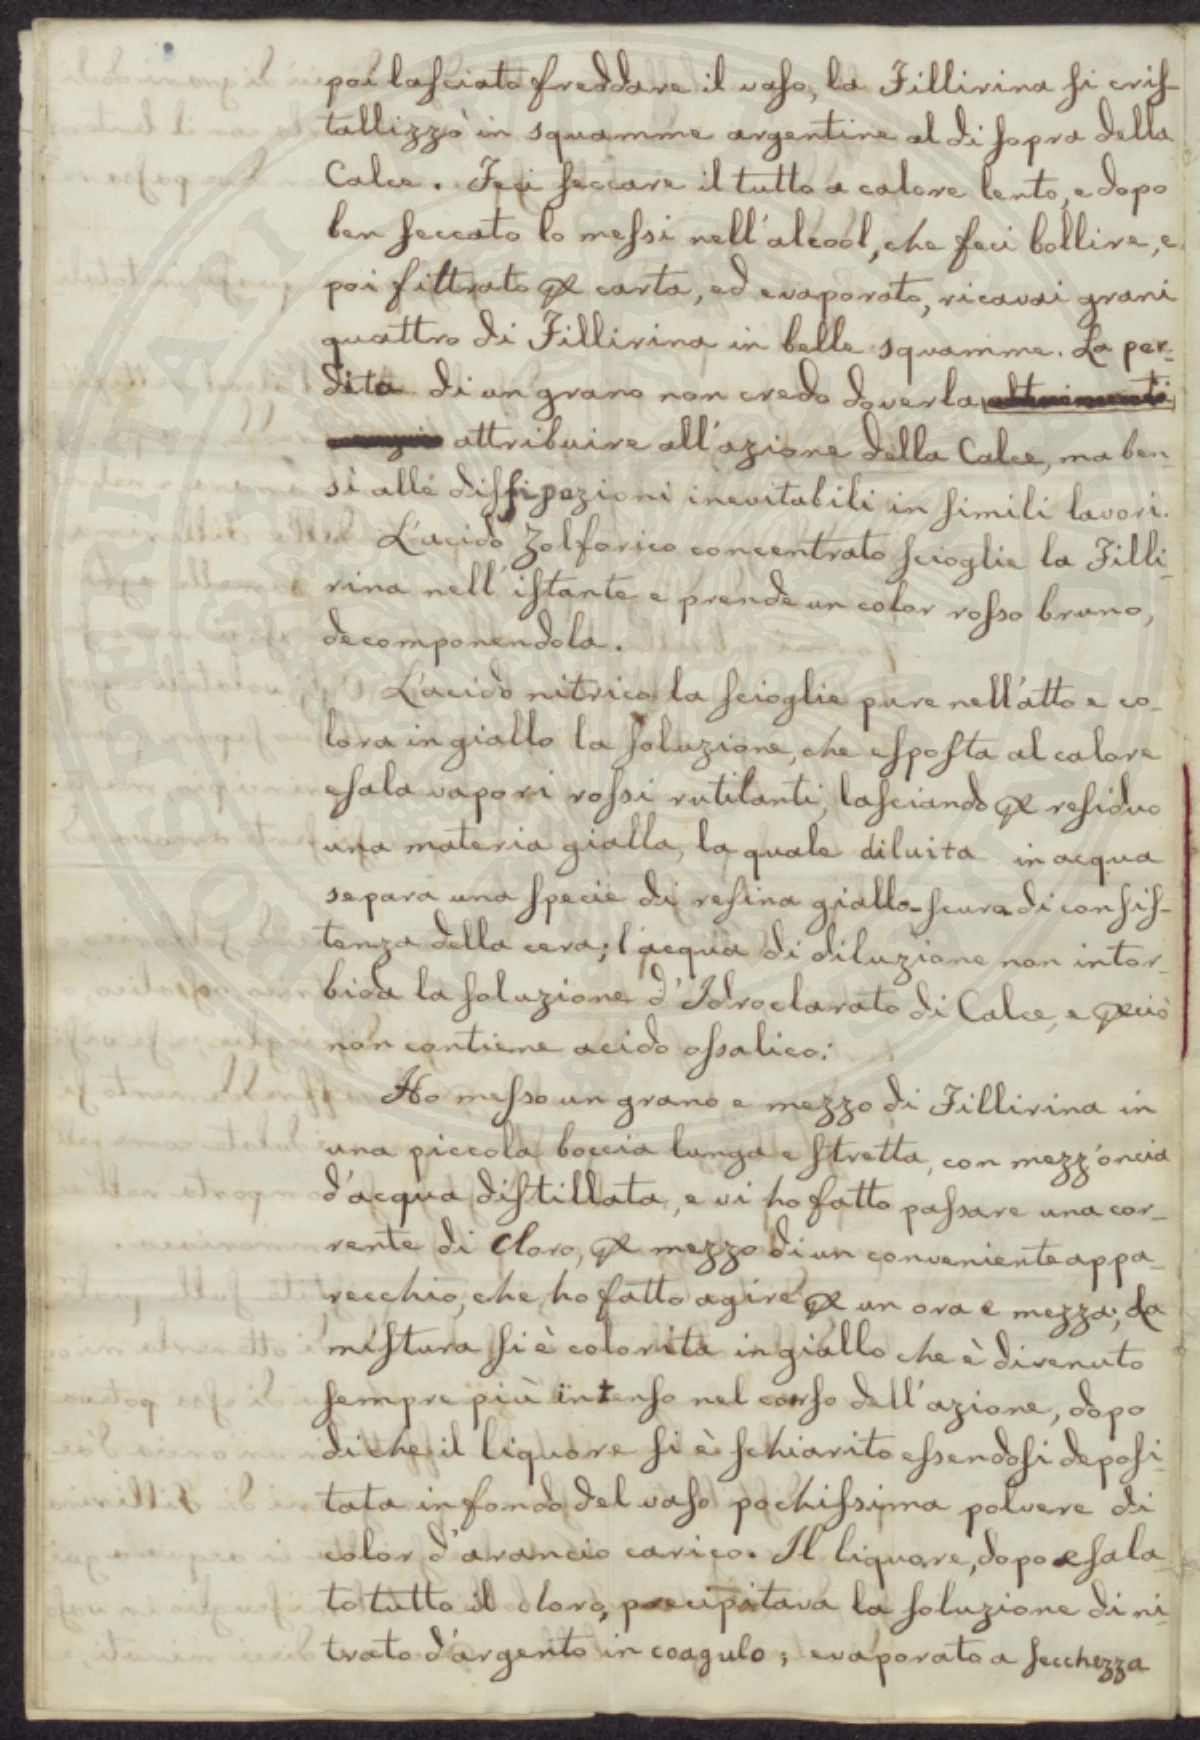 poi lasciato freddare il vaso, la Fillirina si cris-
tallizzò in squamme argentine al di sopra della
Calce. Feci seccare il tutto a calore lento, e dopo
ben seccato lo messi nell'alcool, che feci bollire, e
poi filtrato per carta, ed evaporato, ricavai grani
quattro di Fillirina in belle squamme. La per-
dita di un grano non credo doverla
attribuire all'azione della Calce, ma ben-
sì alle dissipazioni inevitabili in simili lavori.
L'acido Zolforico concentrato scioglie la Filli-
rina nell'istante e prende un color rosso bruno,
decomponendola.
L'acido nitrico la scioglie pure nell'atto e co-
lora in giallo la soluzione, che esposta al calore
esala vapori rossi rutilanti, lasciando per residuo
una materia gialla, la quale diluita in acqua
separa una specie di resina giallo-scura di consis-
tenza della cera; l'acqua di diluzione non intor-
bida la soluzione d'Idroclorato di Calce, e perciò
non contiene acido ossalico.
Ho messo un grano e mezzo di Fillirina in
una piccola boccia lunga e stretta, con mezz'oncia
d'acqua distillata, e vi ho fatto passare una cor-
rente di Cloro, per mezzo di un conveniente appa-
recchio, che ho fatto agire per un ora e mezza; La
mistura si è colorita in giallo che è divenuto
sempre più intenso nel corso dell'azione, dopo
di che il liquore si è schiarito essendosi deposi-
tata in fondo del vaso pochissima polvere di
color d'arancio carico. Il liquore, dopo esala-
to tutto il cloro, precipitava la soluzione di ni-
trato d'argento in coagulo; evaporato a secchezza